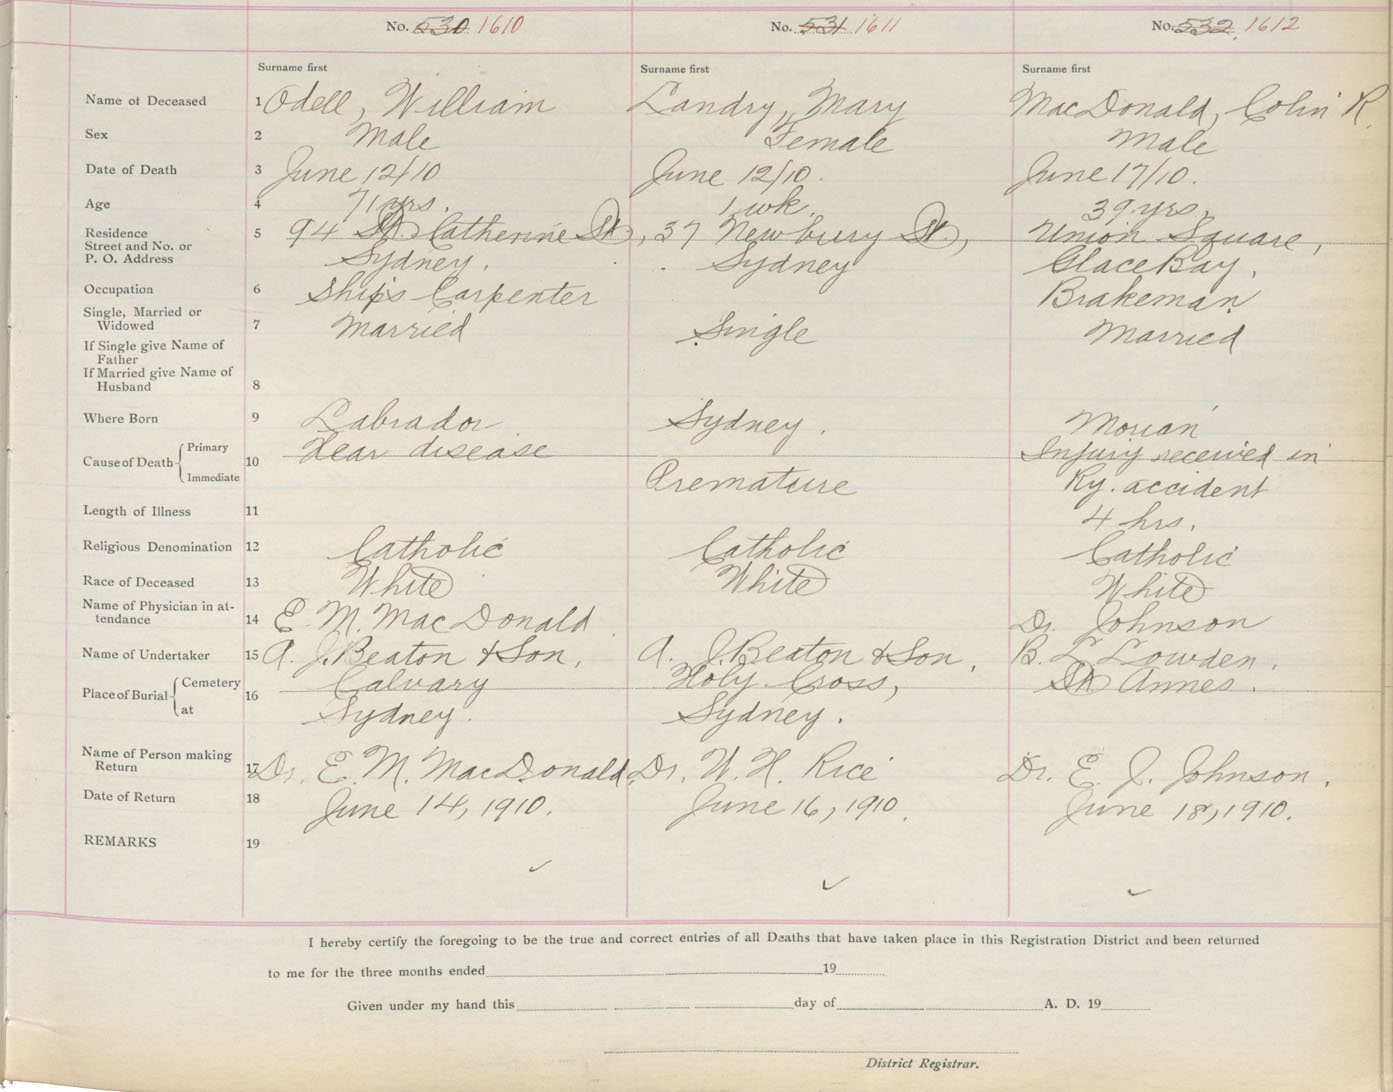 No. 530 1610 No. 531 1611 No. 532 1612
Surname first Surname first Surname first
Name of Deceased 1 Odell, William Landry, Mary MacDonald, Colin R.
Sex 2 Male Female Male
Date of Death 3 June 12/10 June 12/10. June 17/10.
Age 4 71 yrs. 1 wk. 39 yrs.
Residence 5 94 St. Catherine St., 37 Newbury St., Union Square,
Street and No. or
P. O. Address Sydney. Sydney Glace Bay.
Occupation 6 Ship's Carpenter Brakeman.
Single, Married or
Widowed 7 Married Single Married
If Single give Name of
Father
If Married give Name of
Husband 8
Where Born 9 Labrador Sydney. Morien
Cause of Death Primary 10 Hear disease Injury received in
Immediate Premature Ry. accident
Length of Illness 11 4 hrs.
Religious Denomination 12 Catholic Catholic Catholic
Race of Deceased 13 White White White
Name of Physician in at-
tendance 14 E. M. MacDonald Dr. Johnson
Name of Undertaker 15 A. J. Beaton & Son, A. J. Beaton & Son, B. L. Lowden.
Place of Burial Cemetery 16 Calvary Holy Cross, St Annes.
at Sydney. Sydney.
Name of Person making
Return 17 Dr. E. M. MacDonald. Dr. W. H. Rice Dr. E. J. Johnson.
Date of Return 18 June 14, 1910. June 16, 1910. June 18, 1910.
REMARKS 19
I hereby certify the foregoing to be the true and correct entries of all Deaths that have taken place in this Registration District and been returned
to me for the three months ended 19
Given under my hand this day of A. D. 19
District Registrar.